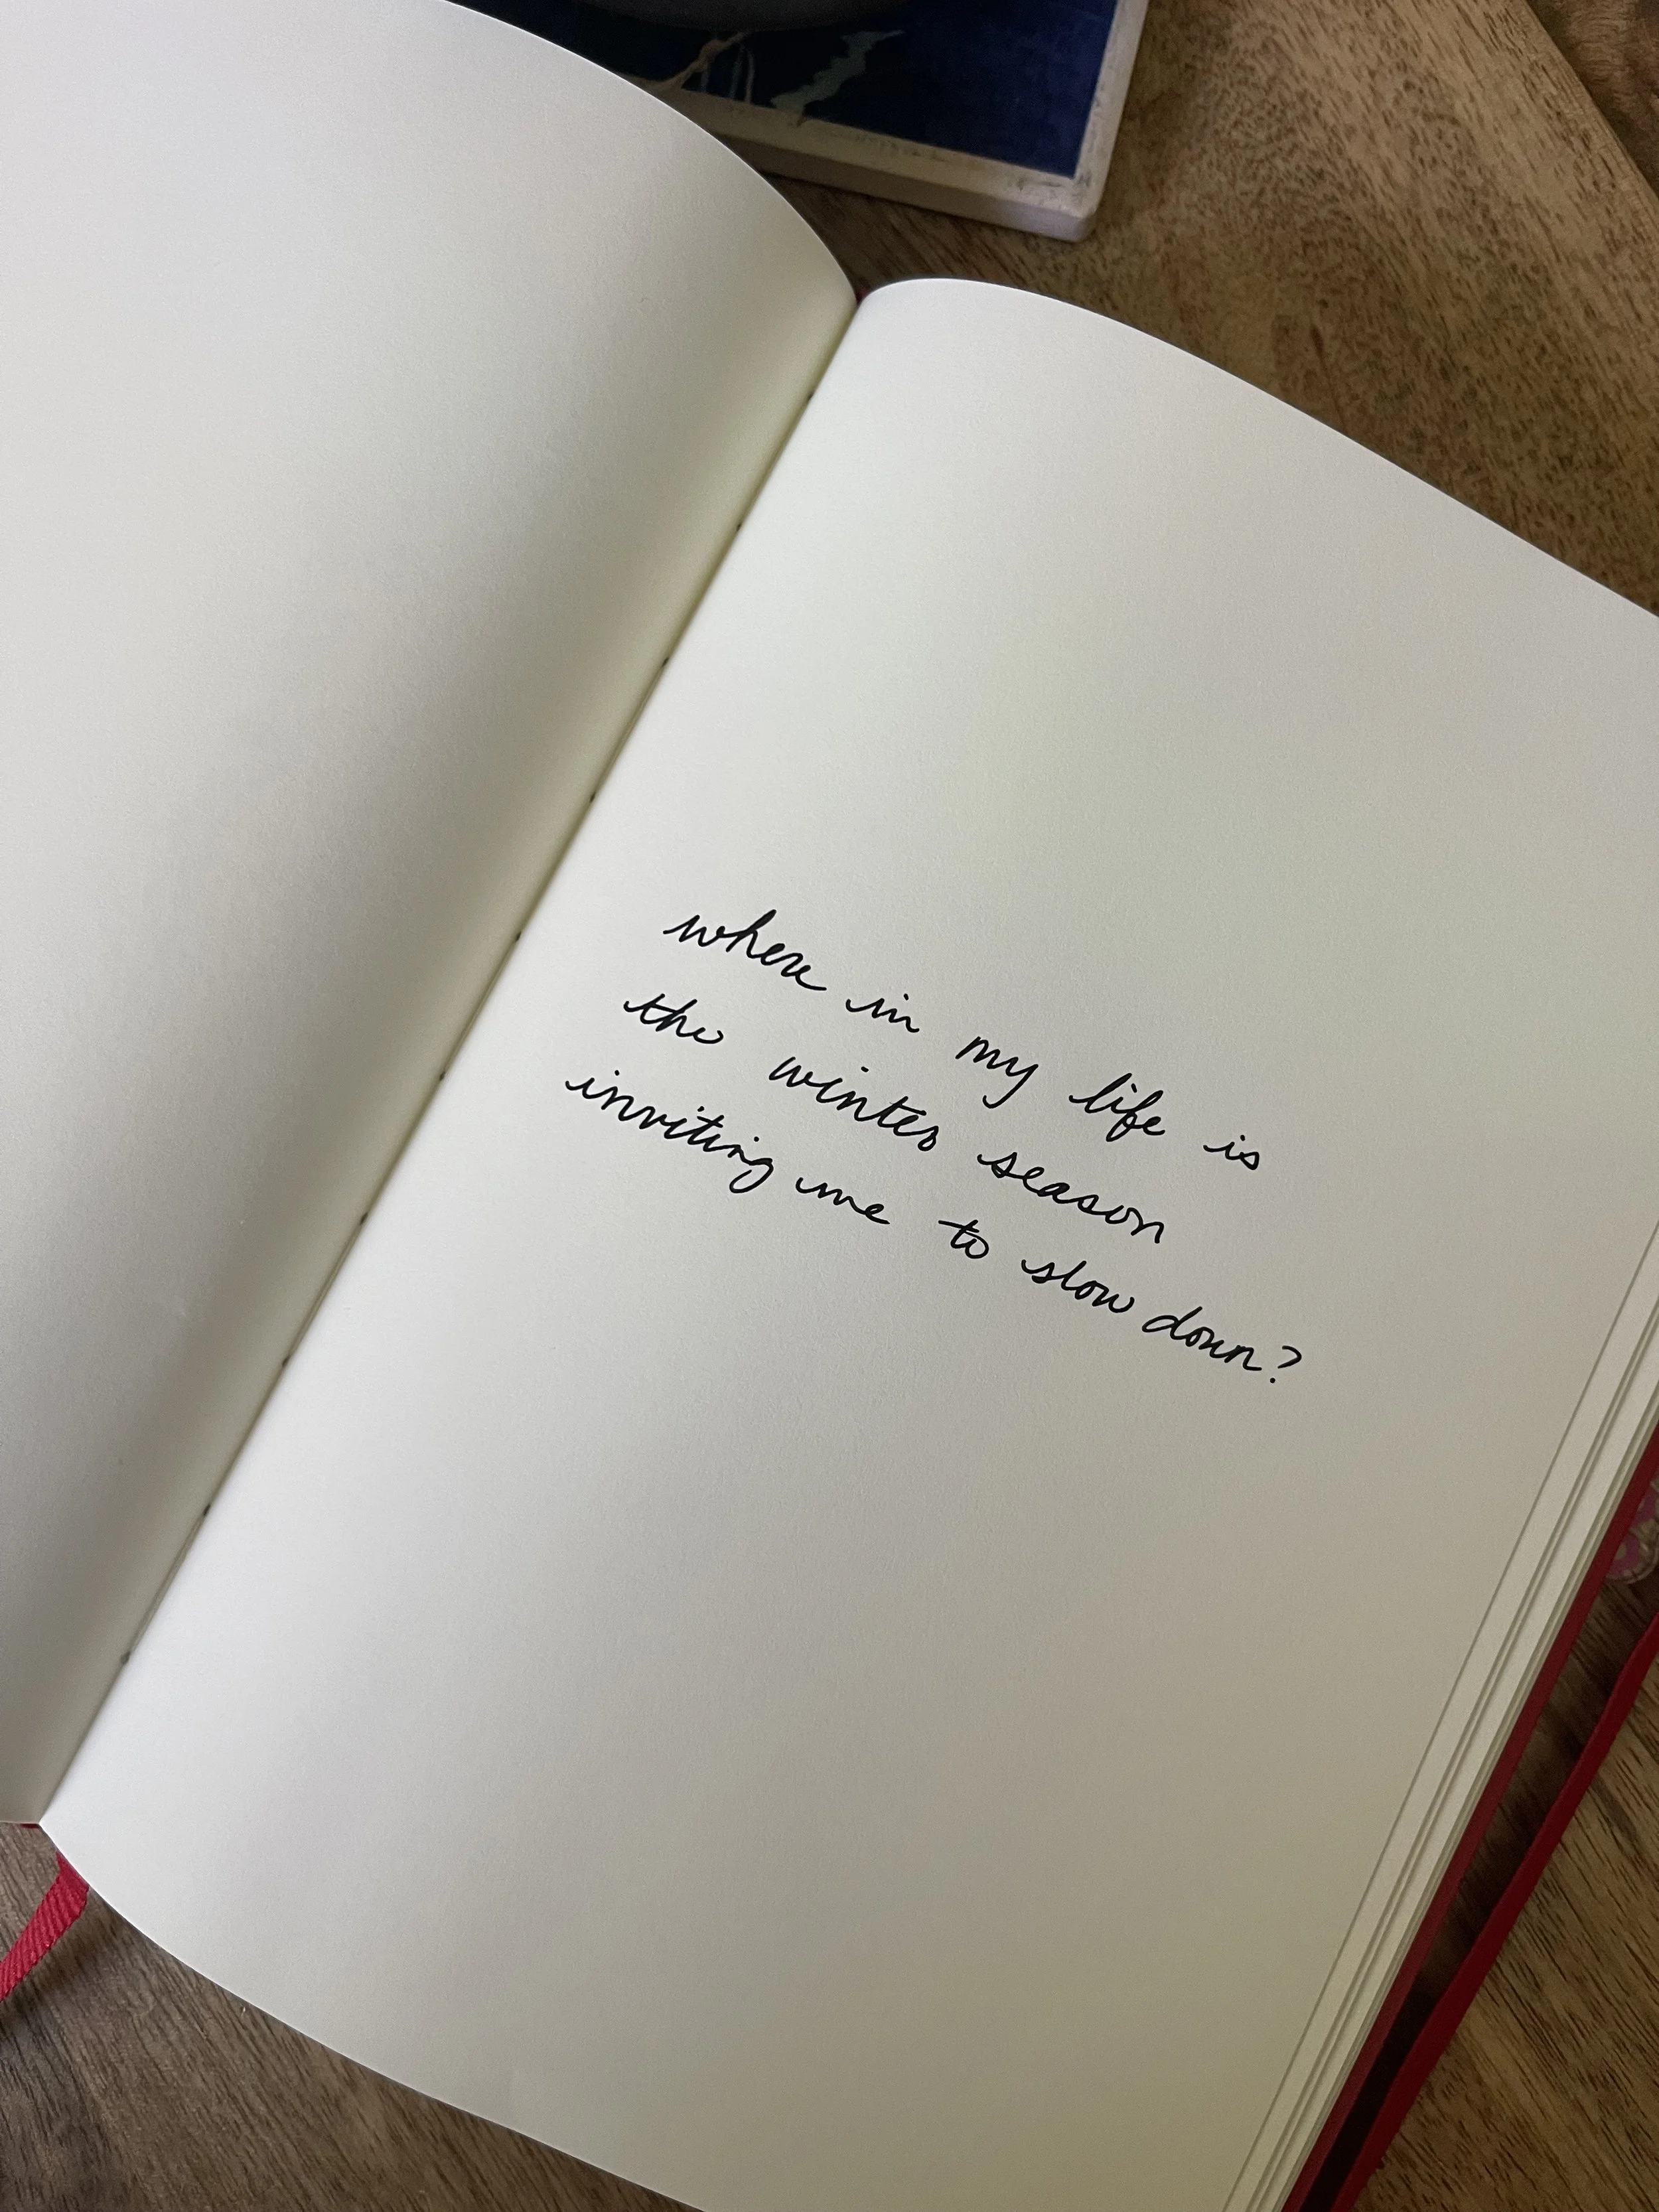 where in my life is
the winter season
inviting me to slow down?